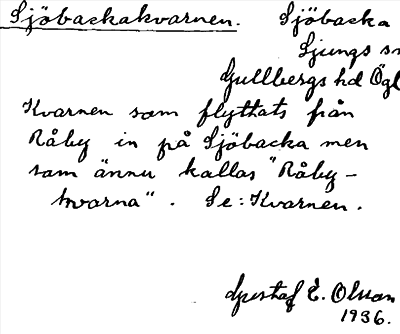 Sjöbackakvarnen. Sjöbacka
Ljungs
Gullbergs hd Ögl
Kvarnen som flyttats från
Råby in på Sjöbacka men
som ännu kallas "Råby-
kvarna". Se: Kvarnen.
Gustaf E. Olsson
1936.